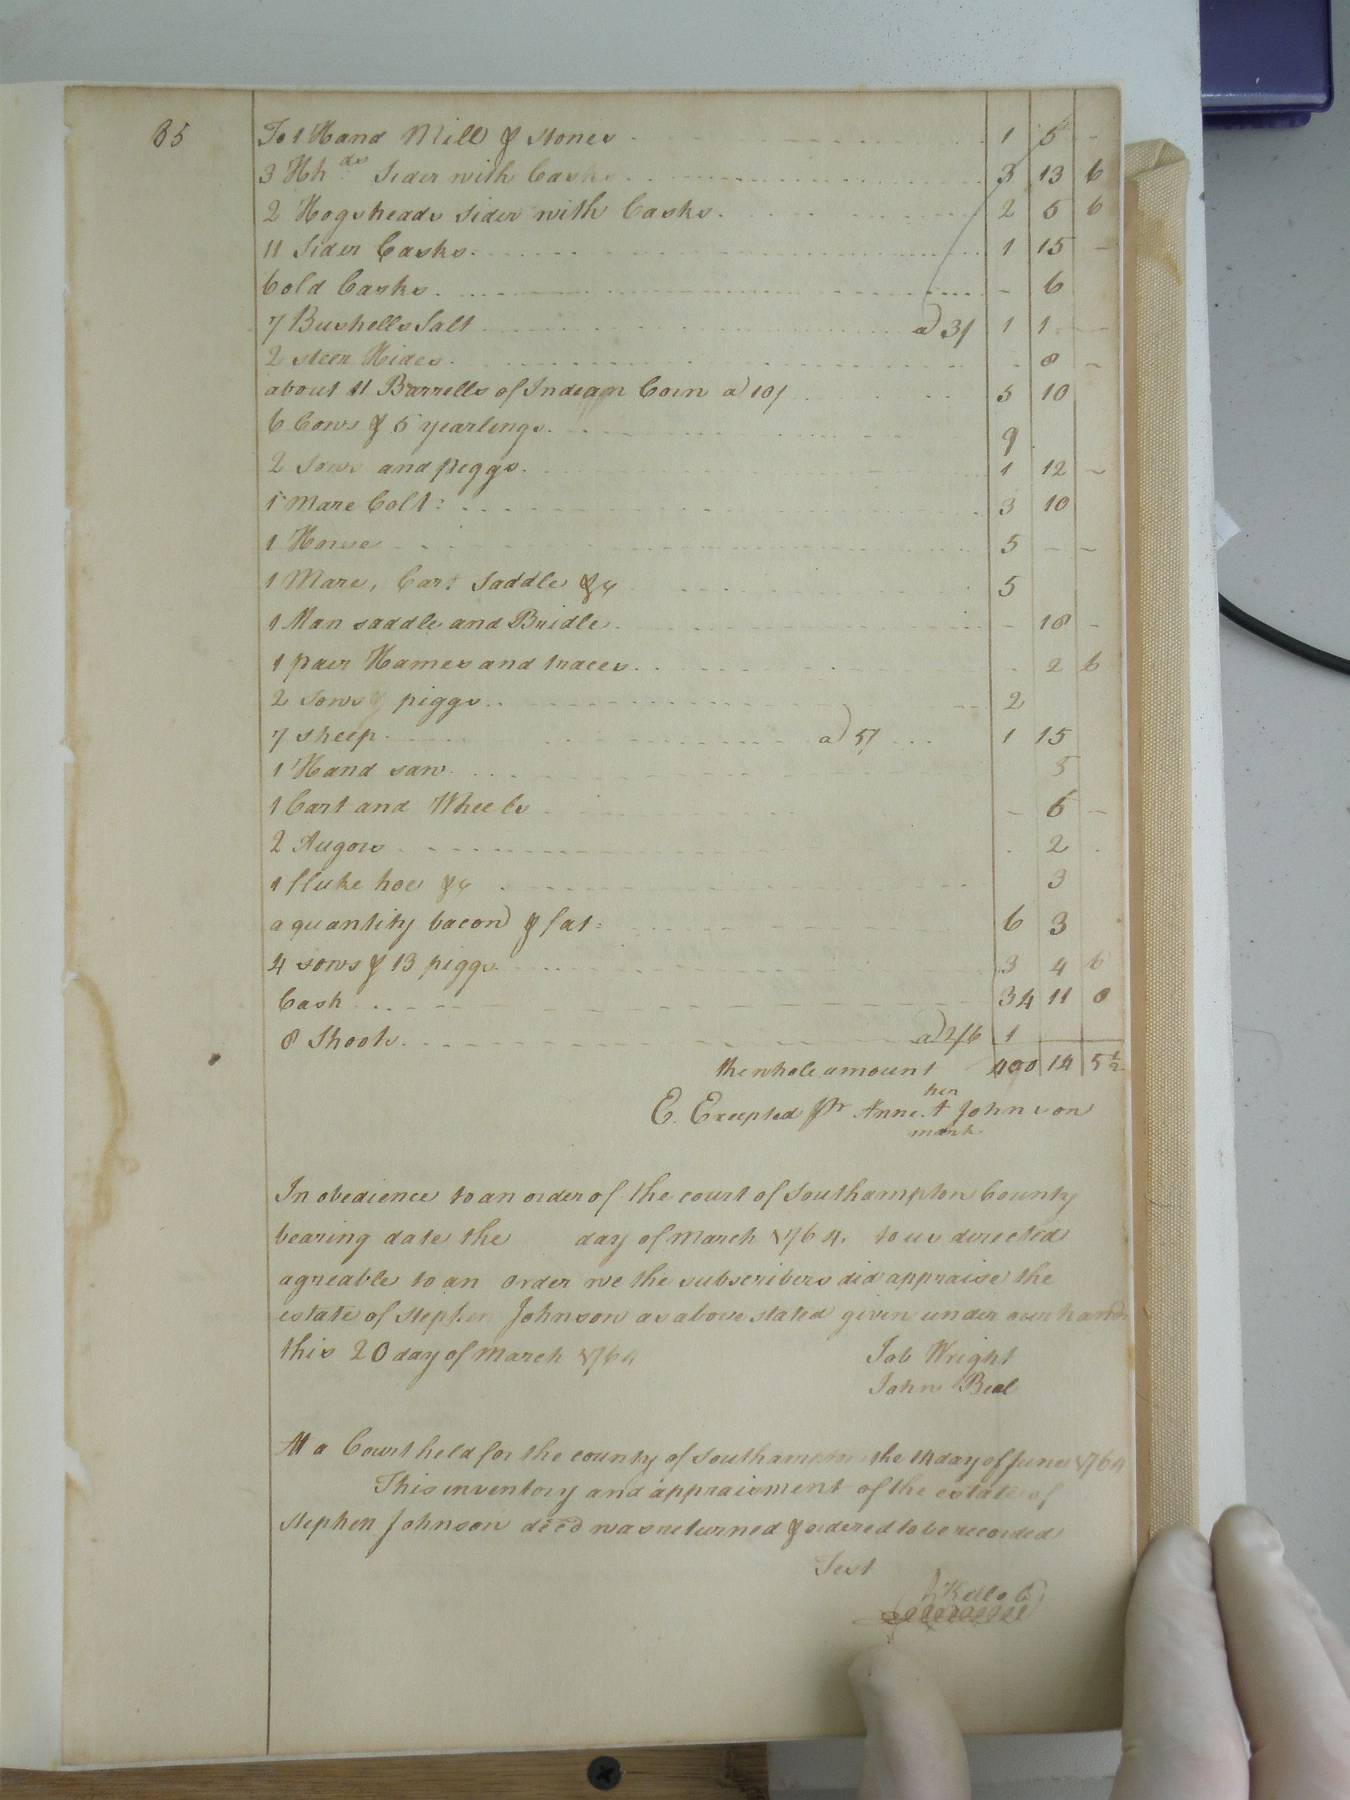 85
To 1 Hand Mill & stones 1 5 -
3 Hhds Sider with Casks 3 13 6
2 Hogsheads sider with Casks. 2 5 6
11 Sider Casks. 1 15 -
6 old Casks. - 6
7 Bushells Salt a) 3/ 1 1 -
2 steer Hides. 8 -
about 11 Barrells of Indian Corn a) 10/ 5 10
6 Cows & 5 yearlings. 9
2 Sows and piggs. 1 12 -
1 Mare Colt: 3 10
1 Horse 5 - -
1 Mare, Cart Saddle &c 5
1 Man saddle and Bridle. - 18 -
1 pair Hames and traces. 2 6
2 Sows & piggs. 2
7 sheep. a) 5/ 1 15
1 Hand saw. 5
1 Cart and Wheels - 6 -
2 Augors 2
1 fluke hoe &c 3
a quantity bacon & fat: 6 3
4 sows & 13 piggs. 3 4 6
Cash 34 11 8
8 Shoots. a) 2/6 1
the whole amount 400 14 5 1/2
her
E. Excepted Pr Anne. A Johnson
mark.
In obedience to an order of the court of Southampton County
bearing date the day of March 1764. to us directed
agreable to an order we the subscribers did appraise the
estate of Stephen Johnson as above stated given under our hands
this 20 day of March 1764
Job Wright
John Beal
At a Court held for the county of Southampton the 14 day of June 1764
This inventory and appraisment of the estate of
Stephen Johnson decd was returned & ordered to be recorded
Test
Kello C